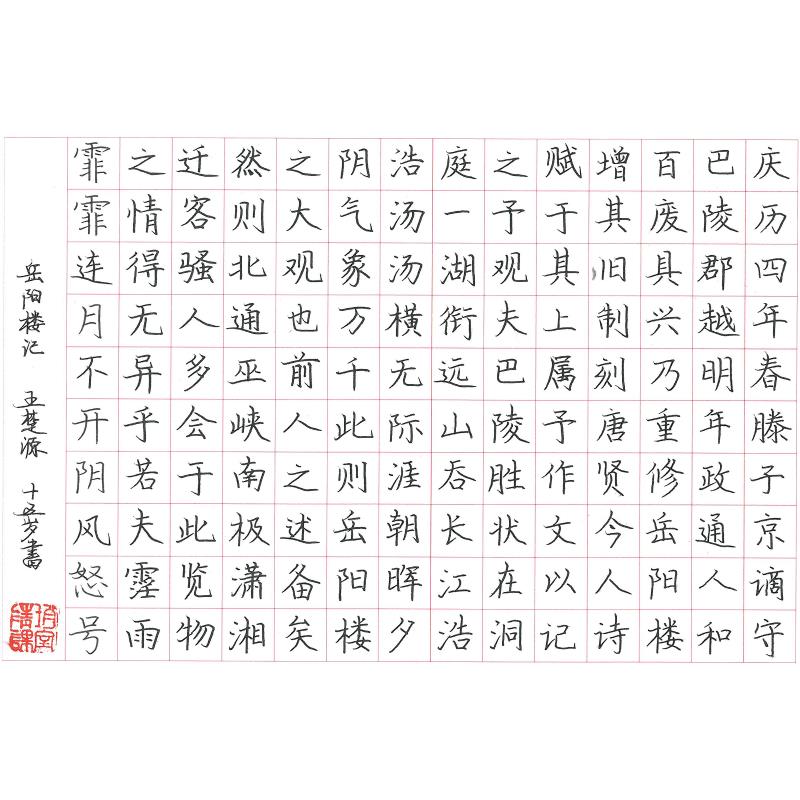 庆历四年春滕子京谪守
巴陵郡越明年政通人和
百废具兴乃重修岳阳楼
增其旧制刻唐贤今人诗
赋于其上属予作文以记
之予观夫巴陵胜状在洞
庭一湖衔远山吞长江浩
浩汤汤横无际涯朝晖夕
阴气象万千此则岳阳楼
之大观也前人之述备矣
然则北通巫峡南极潇湘
迁客骚人多会于此览物
之情得无异乎若夫霪雨
霏霏连月不开阴风怒号
岳阳楼记 王楚源 十五岁書